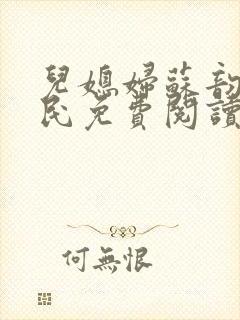 兒媳婦蘇韵
民免費閱讀
何無恨